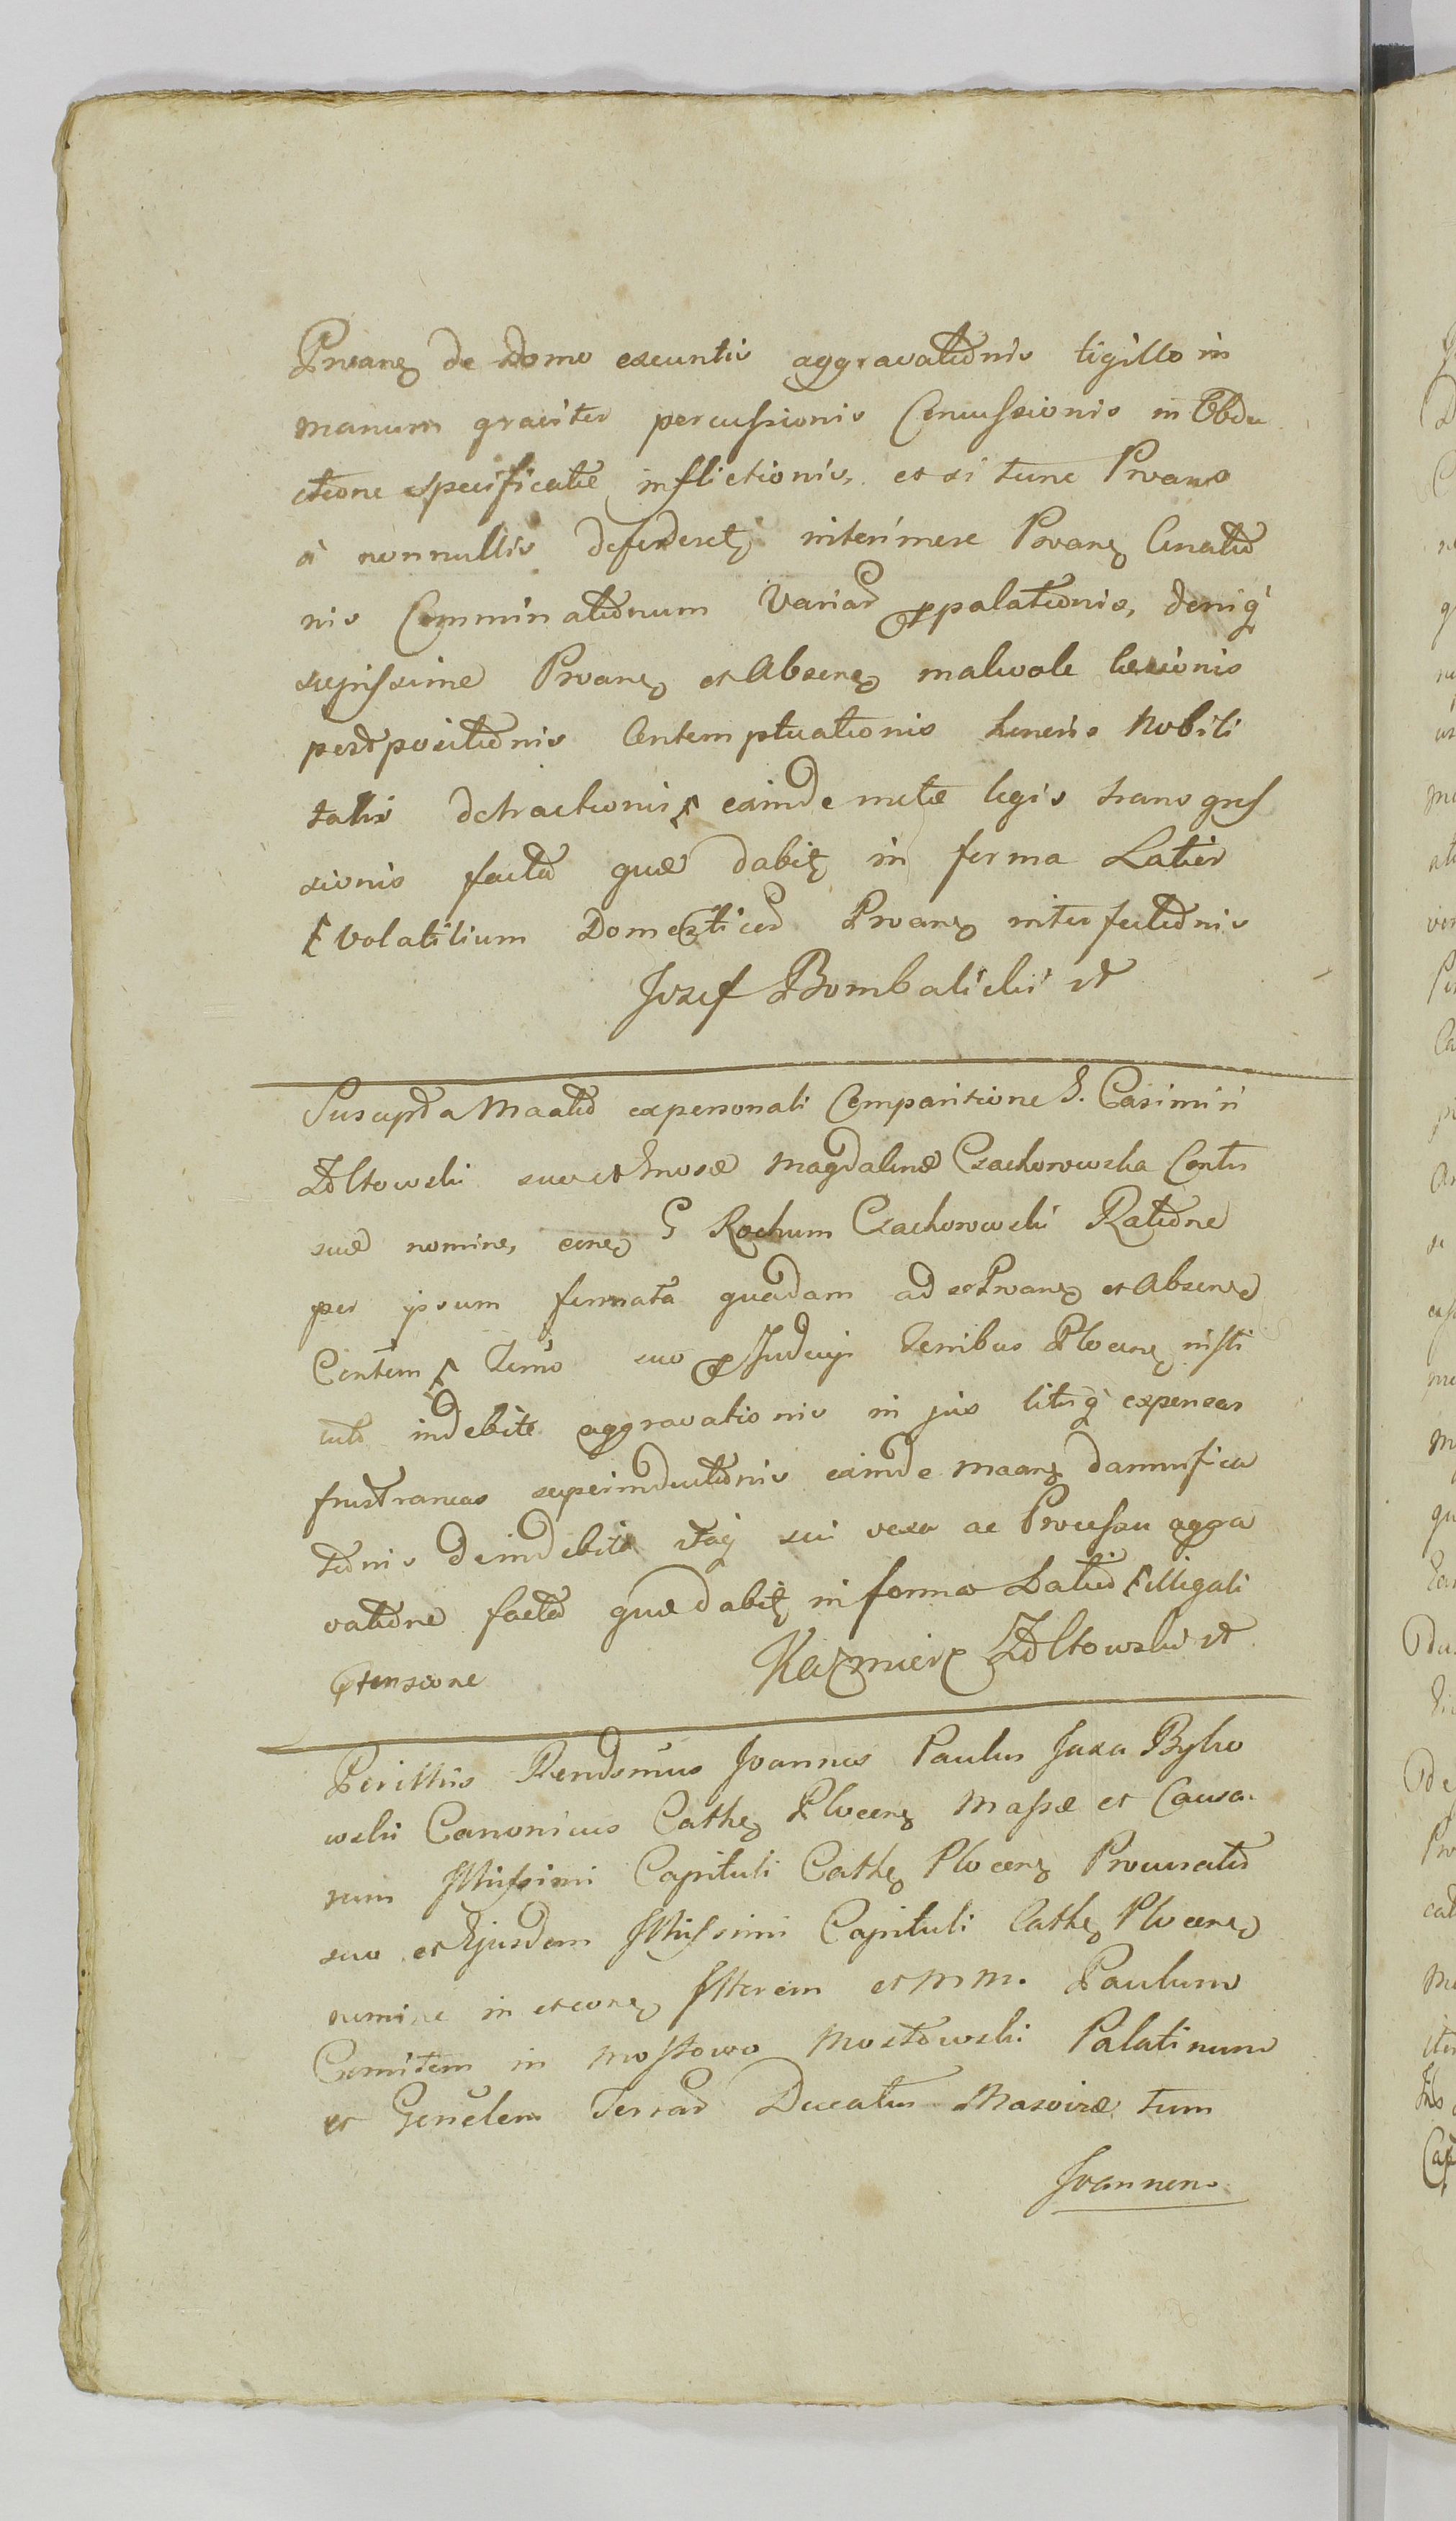 Prvane de Domo exeuntis aggravationis tigillo in
manum graviter percussionis Concussionis in Obdu
ctione specificatæ inflictionis, et si tunc Prvans
à nonnullis defenderet interimere Prvane Conatio
nis Comminationum Variar ppalationis, deniq
sæpissime Prvane et Absene malevole læsionis
postpositionis Contemptuationis honoris Nobili
talis detractionis exinde metæ legis transgres
sionis facta quæ dabit in forma Latior
Volatilium Domesticor Prvane interfectionis
Jozef Bombalicki
Suscepta Maatio ex personali Comparitione G. Casimiri
Zołtowski suo et Gnosæ Magdalenæ Czachorowska Contis
suæ nomine, cone G Rochum Czachorowski Ratione
per ipsum fermata quadam ad se Prvane et Absene
Contem suo Judicij Terribus Plocene insti
tuto indebite aggravationis in jus litisq expensas
frustraneas superinductionis exinde maane damnifica
tionis de indebita sui vexa ac Processu aggra
vatione facta quæ dabit in forma Latio illegali
ptensione
Kazmierz Zołtowski
Perillris Rendsmus Joannes Paulus Jaxa Byko
wski Canonicus Cathe Plocene Massæ et Causa
rum Illrissimi Capituli Cathe Plocene Procurator
suo et Ejusdem Illrissimi Capituli Cathe Plocene
nomine in et cone Illtrem et MM. Paulum
Comitem in Mostowo Mostowski Palatinum
et Genelem Terrar Ducatus Masoviæ tum
Joannem